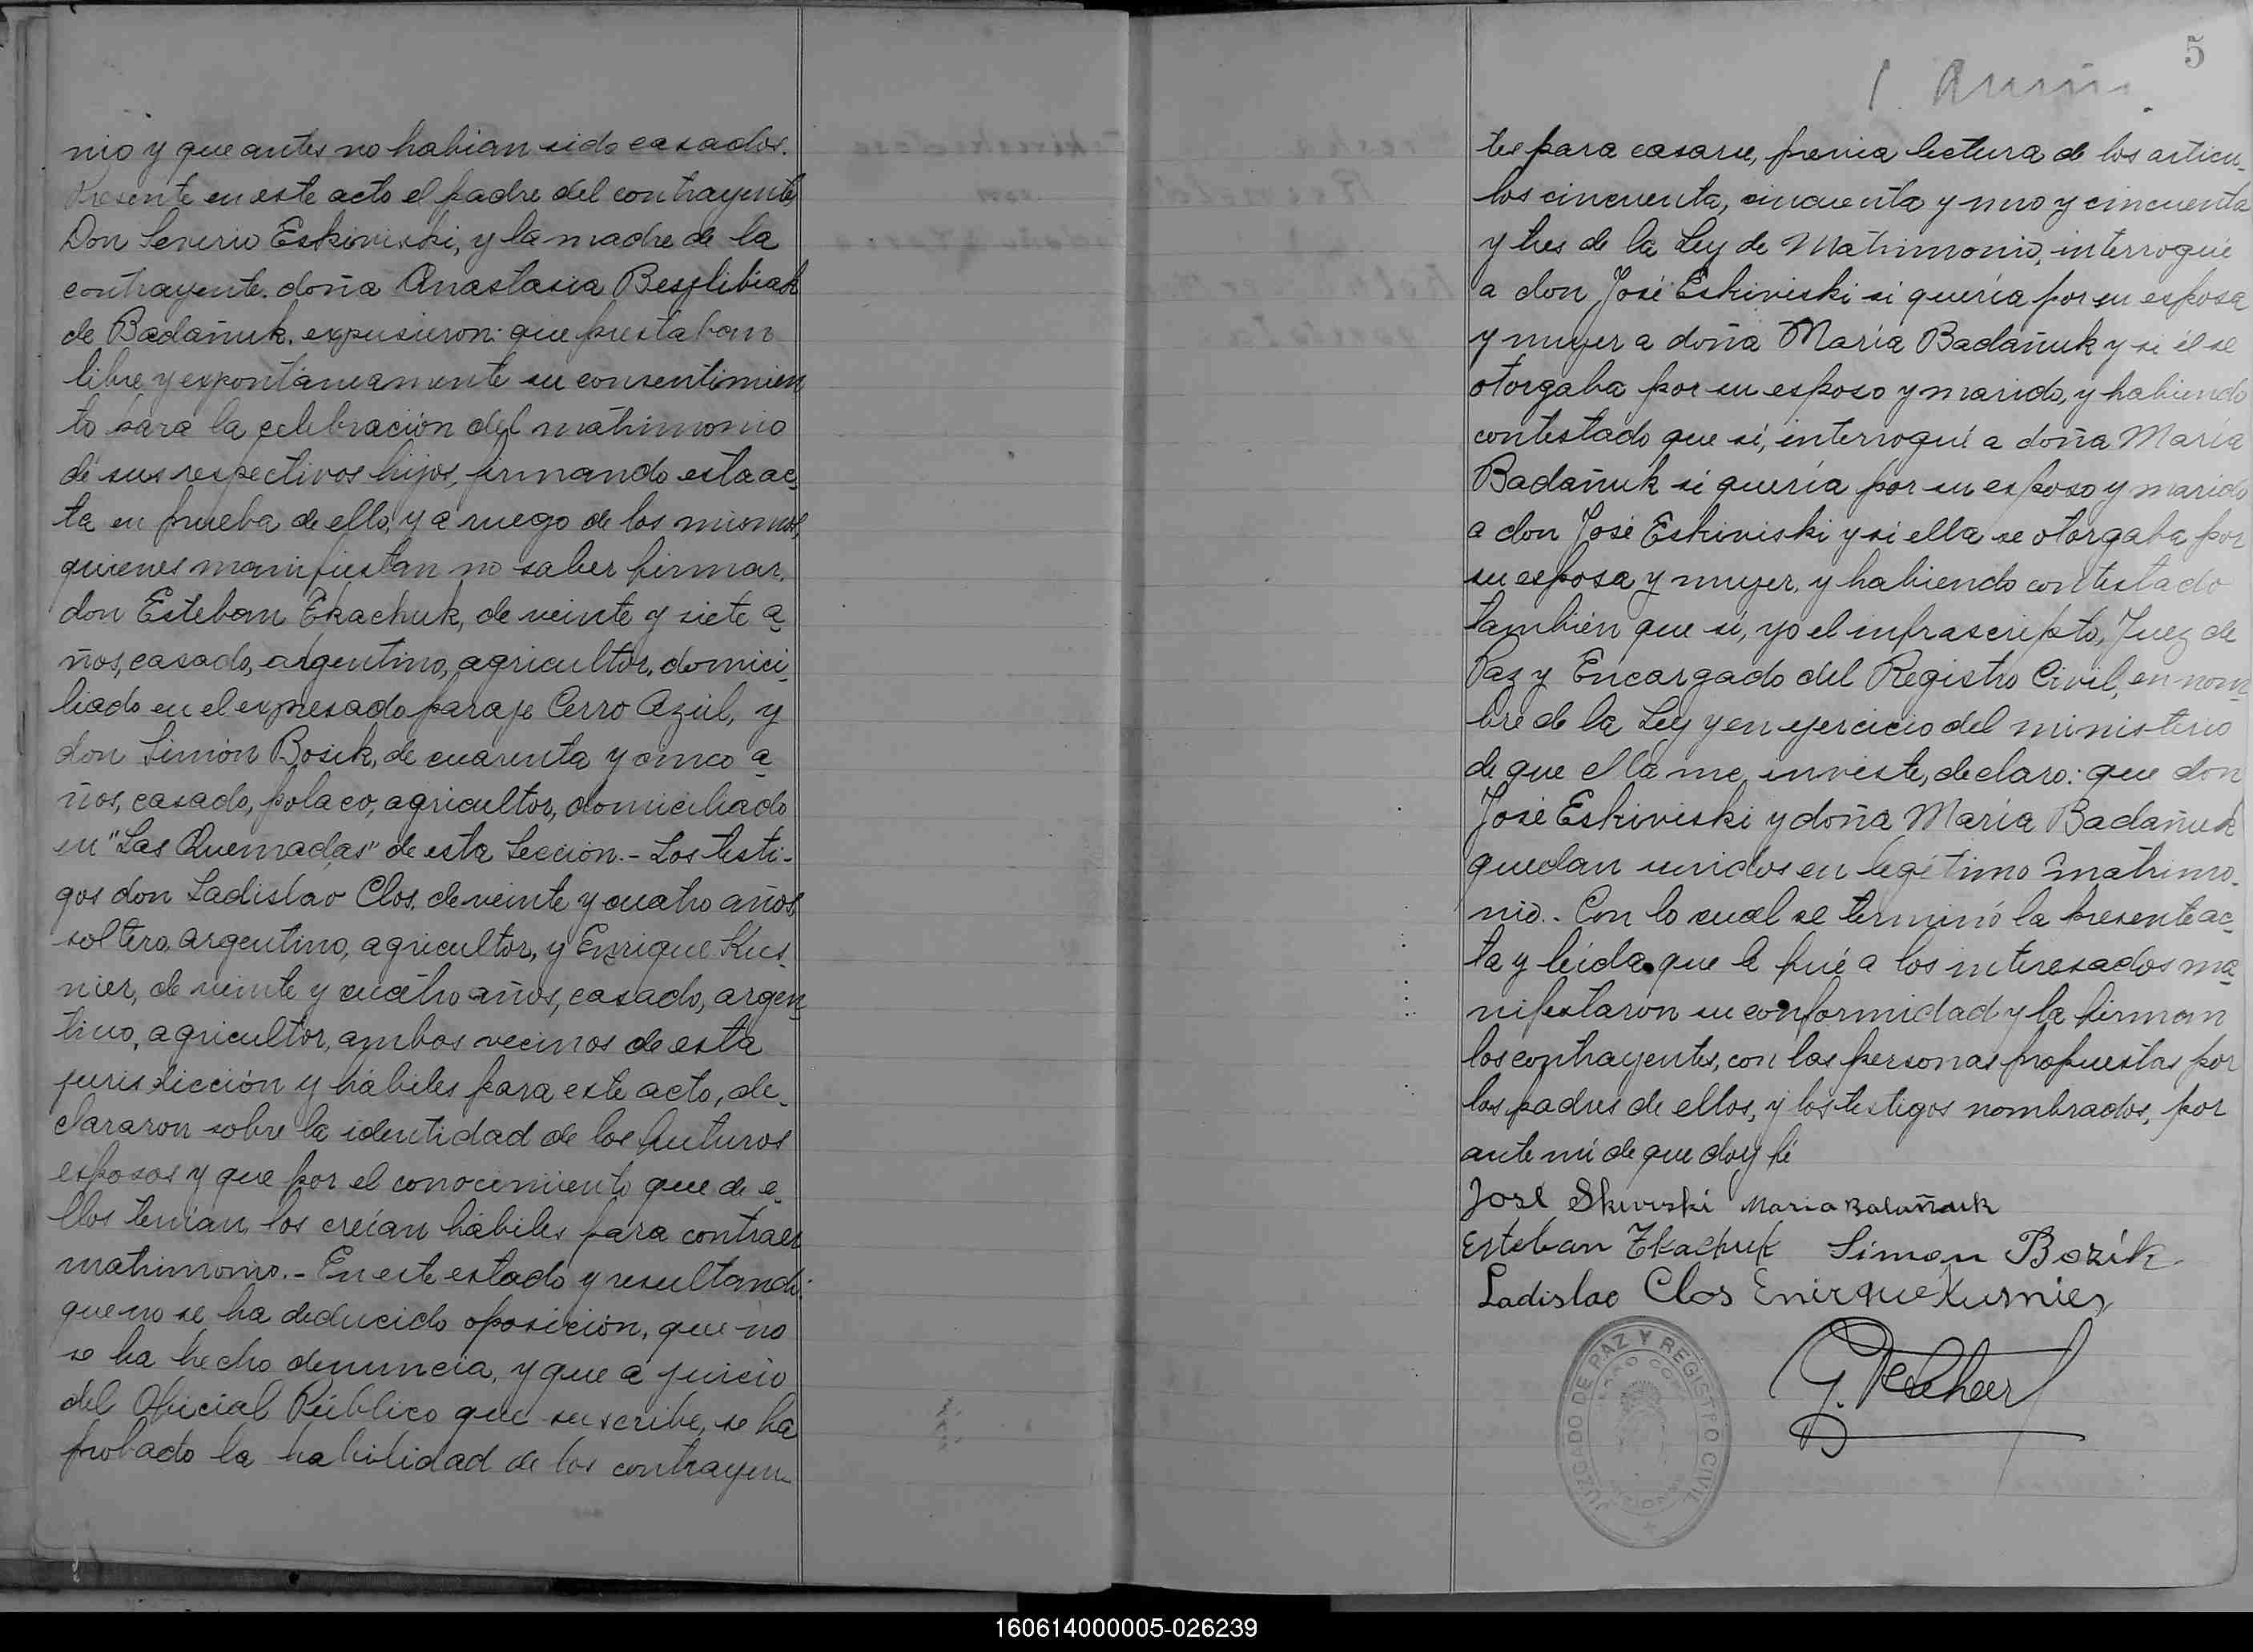 nio y que antes no habian sido casados.
Presente en este acto el padre del contrayente,
Don Severio Eskiviski, y la madre de la
contrayente. doña Anastasia Besflibiak
de Badañuk. expusieron: que prestaban
libre y expontáneamente su consentimien
to para la celebración del matrimonio
de sus respectivos hijos, firmando esta ac_
ta en prueba de ello, y a ruego de los mismos,
quienes manifiestan no saber firmar,
don Esteban Tkachuk, de veinte y siete a_
ños, casado, argentino, agricultor, domici_
liado en el expresado paraje Cerro Azúl, y
don Simón Bosik, de cuarenta y cinco a_
ños, casado, polaco, agricultor, domiciliado
en "Las Quemadas" de esta Sección.- Los testi-
gos don Ladislao Clos. de veinte y cuatro años,
soltero, argentino, agricultor, y Enrique Kus_
nier, de veinte y cuatro años, casado, argen_
tino, agricultor, ambos vecinos de esta
jurisdicción y hábiles para este acto, de_
clararon sobre la identidad de los futuros
esposos y que por el conocimiento que de e_
llos tenian, los creían hábiles para contraer
matrimonio.- En este estado y resultando:
que no se ha deducido oposición, que no
se ha hecho denuncia, y que a juicio
del Oficial Público que suscribe, se ha
probado la habilidad de los contrayen_
5
tes para casarse, previa lectura de los articu_
los cincuenta, cincuenta y uno y cincuenta
y tres de la Ley de Matrimonio, interrogué
a don José Eskiviski si quería por su esposa
y mujer a doña María Badañuk y si él se
otorgaba por su esposo y marido, y habiendo
contestado que sí, interrogué a doña María
Badañuk si quería por su esposo y marido
a don José Eskiviski y si ella se otorgaba por
su esposa y mujer, y habiendo contestado
también que sí, yo el infrascripto, Juez de
Paz y Encargado del Registro Civil, en nom_
bre de la Ley y en ejercicio del ministerio
de que ella me inviste, declaro: que don
José Eskiviski y doña María Badañuk
quedan unidos en legítimo matrimo_
nio.- Con lo cual se terminó la presente ac_
ta y leída que le fué a los interesados ma_
nifestaron su conformidad y la firman
los contrayentes, con las personas propuestas por
los padres de ellos, y los testigos nombrados, por
ante mí de que doy fé
José Skiviski Maria Badañuk
Esteban Tkachuk Simon Bozik
Ladislao Clos Enirque Kusnier
JUZGADO DE PAZ Y REGISTRO CIVIL
160614000005-026239